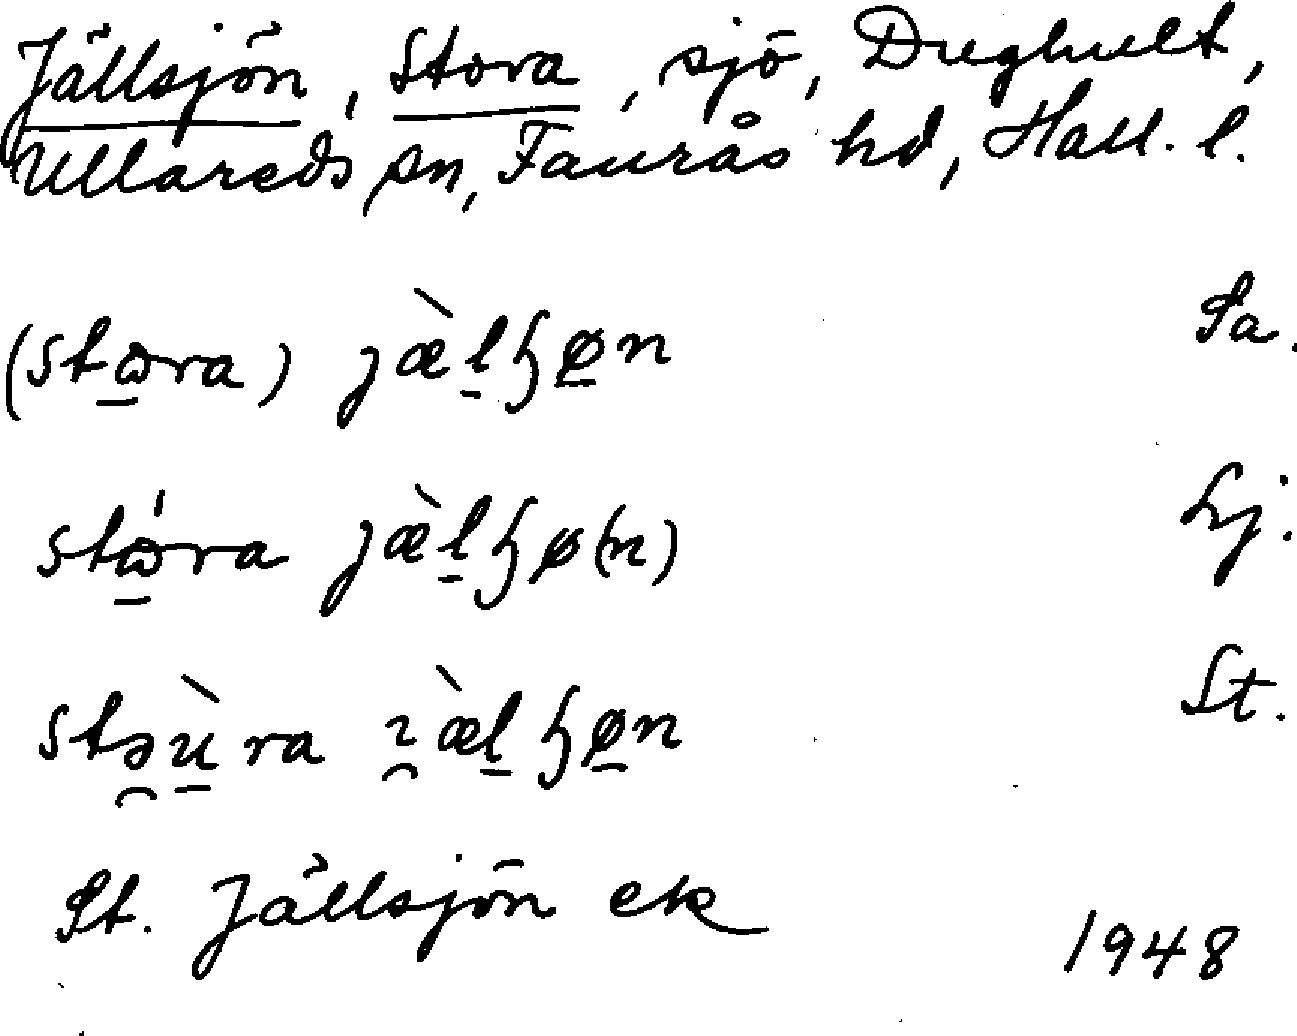 Jällsjön, Stora, sjö, Drughult,
Ullareds sn, Faurås hd, Hall. l.
(stɷ̠ra) jæ̀l̠ɧø̠n Sa.
stɷ̠́ra jæ̀l̠ɧø(n) Lj.
stɔ̯ù̠ra ɿ̯æ̀l̠ɧø̠n St.
St. Jällsjön ek 1948